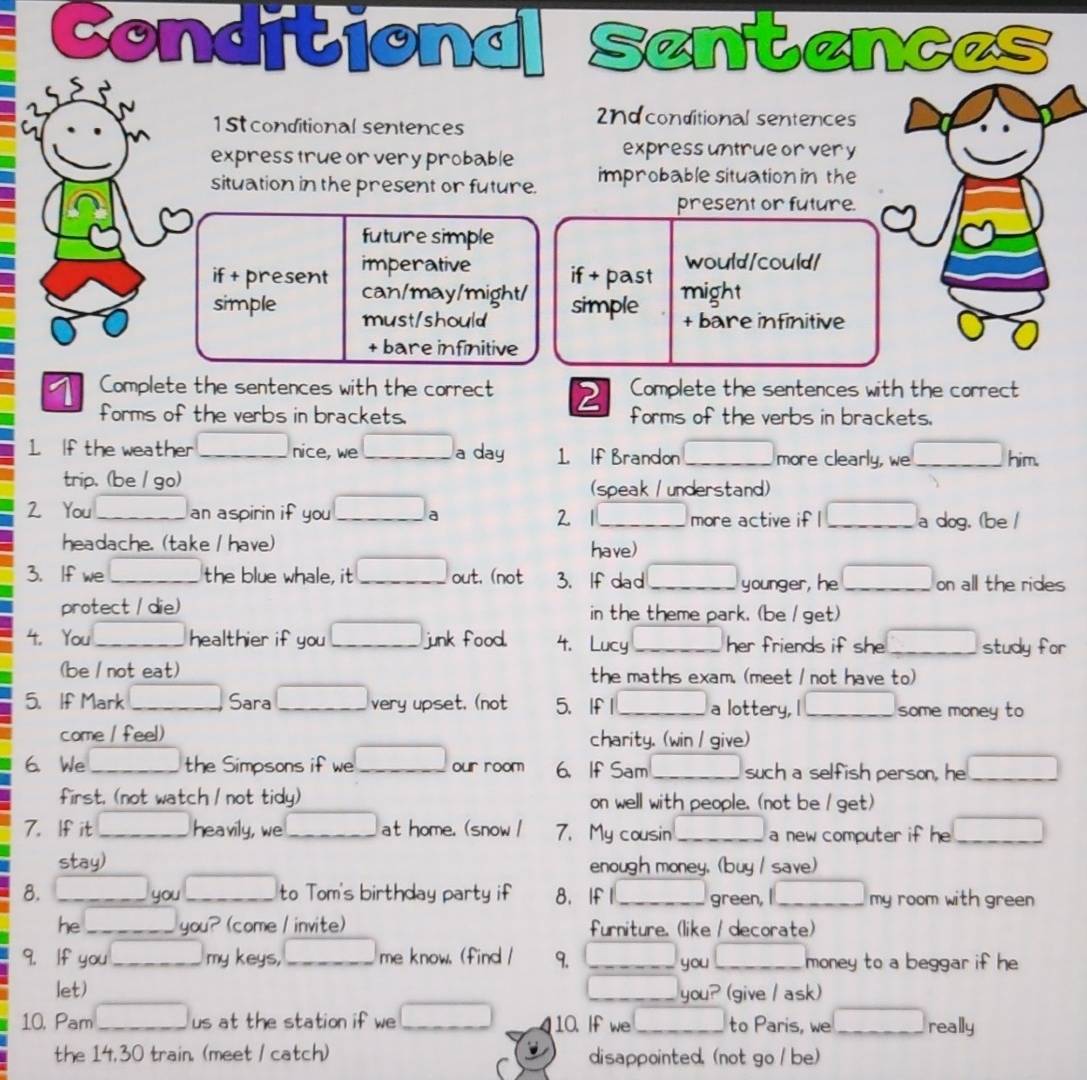 Conditional sentences
1st conditional sentences
express true or very probable
situation in the present or future.
2nd conditional sentences
express untrue or very
improbable situation in the
present or future.
if + present
simple
future simple
imperative
can/may/might/
must/should
+ bare infinitive
if + past
simple
would/could/
might
+ bare infinitive
1 Complete the sentences with the correct
forms of the verbs in brackets.
1. If the weather ______ nice, we ______ a day
trip. (be / go)
2. You ______ an aspirin if you ______ a
headache. (take / have)
3. If we ______ the blue whale, it ______ out. (not
protect / die)
4. You ______ healthier if you ______ junk food.
(be / not eat)
5. If Mark ______, Sara ______ very upset. (not
come / feel)
6. We ______ the Simpsons if we ______ our room
first. (not watch / not tidy)
7. If it ______ heavily, we ______ at home. (snow /
stay)
8. ______ you ______ to Tom's birthday party if
he ______ you? (come / invite)
9. If you ______ my keys, ______ me know. (find /
let)
10. Pam ______ us at the station if we ______
the 14.30 train. (meet / catch)
2 Complete the sentences with the correct
forms of the verbs in brackets.
1. If Brandon ______ more clearly, we ______ him.
(speak / understand)
2. I ______ more active if I ______ a dog. (be /
have)
3. If dad ______ younger, he ______ on all the rides
in the theme park. (be / get)
4. Lucy ______ her friends if she ______ study for
the maths exam. (meet / not have to)
5. If I ______ a lottery, I ______ some money to
charity. (win / give)
6. If Sam ______ such a selfish person, he ______
on well with people. (not be / get)
7. My cousin ______ a new computer if he ______
enough money. (buy / save)
8. If I ______ green, I ______ my room with green
furniture. (like / decorate)
9. ______ you ______ money to a beggar if he
______ you? (give / ask)
10. If we ______ to Paris, we ______ really
disappointed. (not go / be)